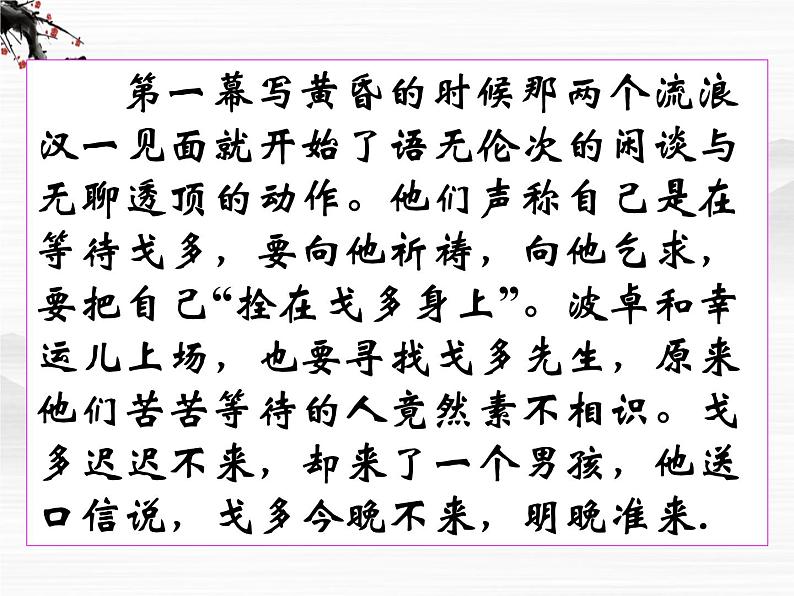 第一幕写黄昏的时候那两个流浪
汉一见面就开始了语无伦次的闲谈与
无聊透顶的动作。他们声称自己是在
等待戈多，要向他祈祷，向他乞求，
要把自己“拴在戈多身上”。波卓和幸
运儿上场，也要寻找戈多先生，原来
他们苦苦等待的人竟然素不相识。戈
多迟迟不来，却来了一个男孩，他送
口信说，戈多今晚不来，明晚准来.